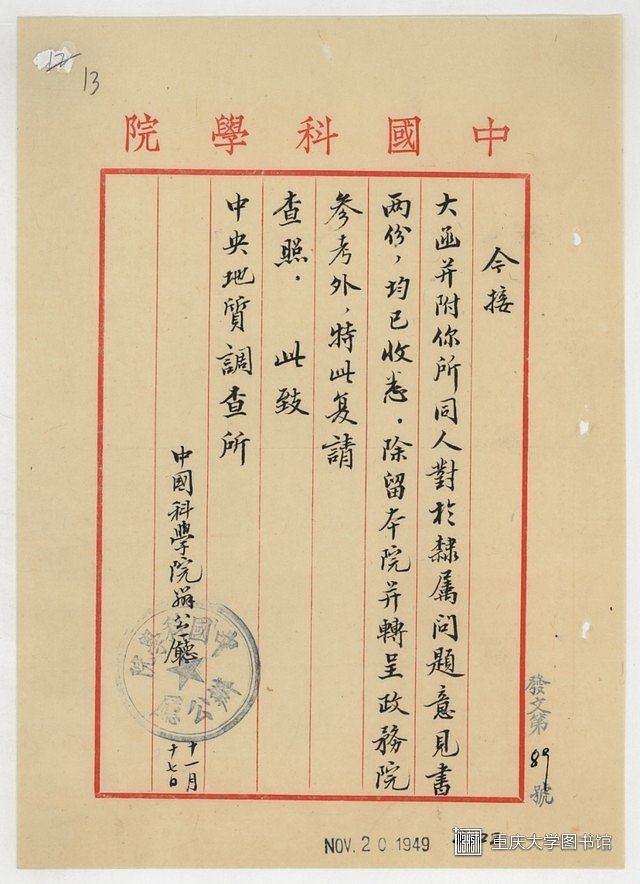 12
13
中國科學院
今接
大函并附你所同人對於隸属问題意見書
两份，均已收悉．除留本院并轉呈政務院
参考外，特此复請
查照． 此致
中央地质調查所
中國科學院辦公廳
十一月
十七日
中國科學院
辦公廳
發文第89號
NOV. 20 1949
重庆大学图书馆